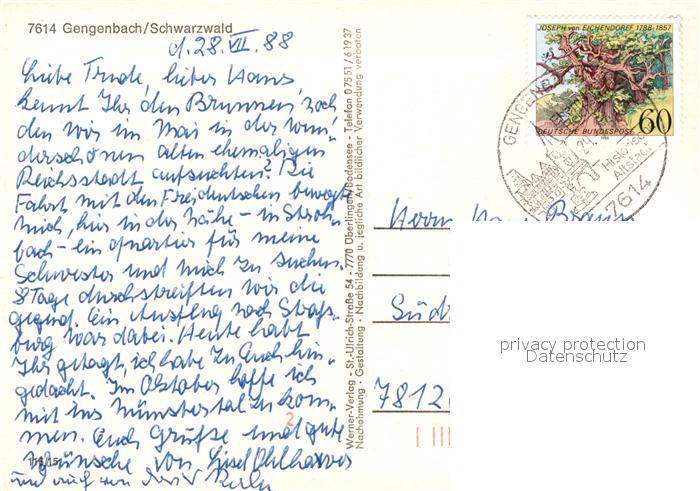 7614 Gengenbach/Schwarzwald
d. 28. VII. 88
Liebe Trude, lieber Hans
kennt Ihr den Brunnen noch
den wir im Mai in der wun-
derschönen alten ehemaligen
Reichsstadt aufsuchten? Die
Fahrt mit den Freideutschen bewegte
mich, hier in der Nähe – in Stroh-
bach – ein Quartier für meine
Schwester und mich zu suchen.
8 Tage durchstreiften wir die
Gegend. Ein Ausflug nach Straß-
burg war dabei. Heute habt
Ihr getagt, ich habe zu Euch hin-
gedacht. Im Oktober hoffe ich
mit ins Münstertal zu kom-
men. Euch Grüße und gute
Wünsche von
und auch von
Werner-Verlag - St.-Ulrich-Straße 54 - 7770 Überlingen/Bodensee - Telefon 07551/61937
Nachahmung - Gestaltung - Nachbildung u. jegliche Art bildlicher Verwendung verboten
JOSEPH von EICHENDORFF 1788-1857
DEUTSCHE BUNDESPOST
60
GENGENB
Historische
Altstadt
7614
Herrn
Süd
7812
2
privacy protection
Datenschutz